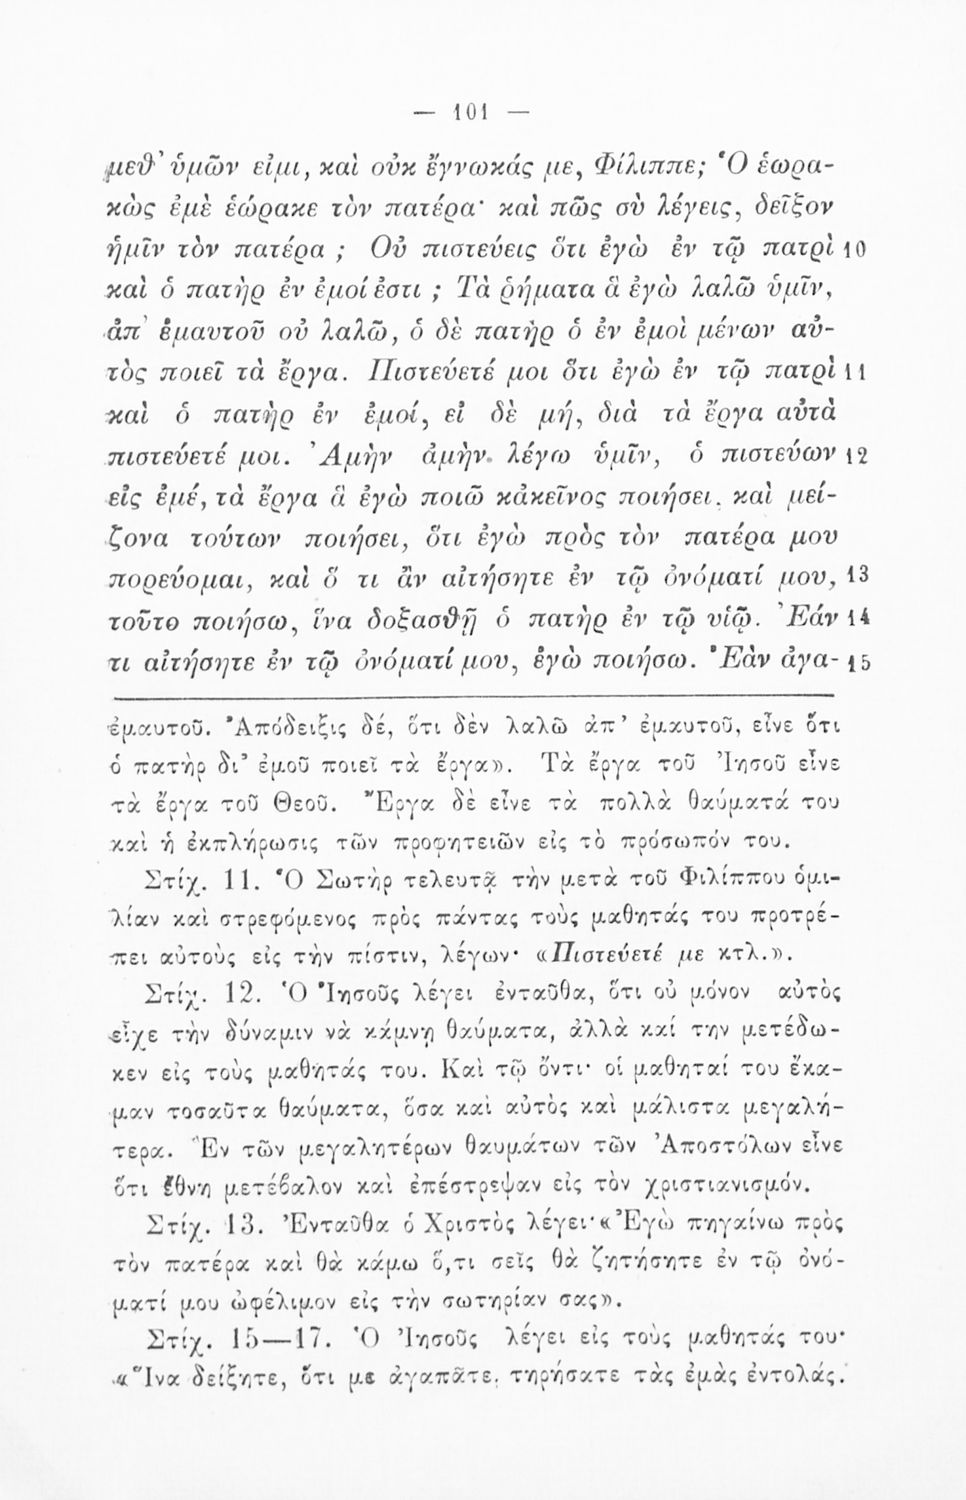 — 101 —
μεθ' ὑμῶν εἰμι, καὶ οὐκ ἔγνωκάς με, Φίλιππε; Ὁ ἑωρα-
κὼς ἐμὲ ἑώρακε τὸν πατέρα· καὶ πῶς σὺ λέγεις, δεῖξον
ἡμῖν τὸν πατέρα ; Οὐ πιστεύεις ὅτι ἐγὼ ἐν τῷ πατρὶ 10
καὶ ὁ πατὴρ ἐν ἐμοί ἐστι ; Τὰ ῥήματα ἃ ἐγὼ λαλῶ ὑμῖν,
ἀπ' ἐμαυτοῦ οὐ λαλῶ, ὁ δὲ πατὴρ ὁ ἐν ἐμοὶ μένων αὐ-
τὸς ποιεῖ τὰ ἔργα. Πιστεύετέ μοι ὅτι ἐγὼ ἐν τῷ πατρὶ 11
καὶ ὁ πατὴρ ἐν ἐμοί, εἰ δὲ μή, διὰ τὰ ἔργα αὐτὰ
πιστεύετέ μοι. Ἀμὴν ἀμὴν λέγω ὑμῖν, ὁ πιστεύων 12
εἰς ἐμέ, τὰ ἔργα ἃ ἐγὼ ποιῶ κἀκεῖνος ποιήσει, καὶ μεί-
ζονα τούτων ποιήσει, ὅτι ἐγὼ πρὸς τὸν πατέρα μου
πορεύομαι, καὶ ὅ τι ἂν αἰτήσητε ἐν τῷ ὀνόματί μου, 13
τοῦτο ποιήσω, ἵνα δοξασθῇ ὁ πατὴρ ἐν τῷ υἱῷ. Ἐάν 14
τι αἰτήσητε ἐν τῷ ὀνόματί μου, ἐγὼ ποιήσω. Ἐὰν ἀγα- 15
ἐμαυτοῦ. Ἀπόδειξις δέ, ὅτι δὲν λαλῶ ἀπ' ἐμαυτοῦ, εἶνε ὅτι
ὁ πατὴρ δι' ἐμοῦ ποιεῖ τὰ ἔργα». Τὰ ἔργα τοῦ Ἰησοῦ εἶνε
τὰ ἔργα τοῦ Θεοῦ. Ἔργα δὲ εἶνε τὰ πολλὰ θαύματά του
καὶ ἡ ἐκπλήρωσις τῶν προφητειῶν εἰς τὸ πρόσωπόν του.
Στίχ. 11. Ὁ Σωτὴρ τελευτᾷ τὴν μετὰ τοῦ Φιλίππου ὁμι-
λίαν καὶ στρεφόμενος πρὸς πάντας τοὺς μαθητάς του προτρέ-
πει αὐτοὺς εἰς τὴν πίστιν, λέγων· «Πιστεύετέ με κτλ.».
Στίχ. 12. Ὁ Ἰησοῦς λέγει ἐνταῦθα, ὅτι οὐ μόνον αὐτὸς
εἶχε τὴν δύναμιν νὰ κάμνῃ θαύματα, ἀλλὰ καί την μετέδω-
κεν εἰς τοὺς μαθητάς του. Καὶ τῷ ὄντι· οἱ μαθηταί του ἔκα-
μαν τοσαῦτα θαύματα, ὅσα καὶ αὐτὸς καὶ μάλιστα μεγαλή-
τερα. Ἓν τῶν μεγαλητέρων θαυμάτων τῶν Ἀποστόλων εἶνε
ὅτι ἔθνη μετέβαλον καὶ ἐπέστρεψαν εἰς τὸν χριστιανισμόν.
Στίχ. 13. Ἐνταῦθα ὁ Χριστὸς λέγει· «Ἐγὼ πηγαίνω πρὸς
τὸν πατέρα καὶ θὰ κάμω ὅ,τι σεῖς θὰ ζητήσητε ἐν τῷ ὀνό-
ματί μου ὠφέλιμον εἰς τὴν σωτηρίαν σας».
Στίχ. 15—17. Ὁ Ἰησοῦς λέγει εἰς τοὺς μαθητάς του·
«Ἵνα δείξητε, ὅτι με ἀγαπᾶτε, τηρήσατε τὰς ἐμὰς ἐντολάς.